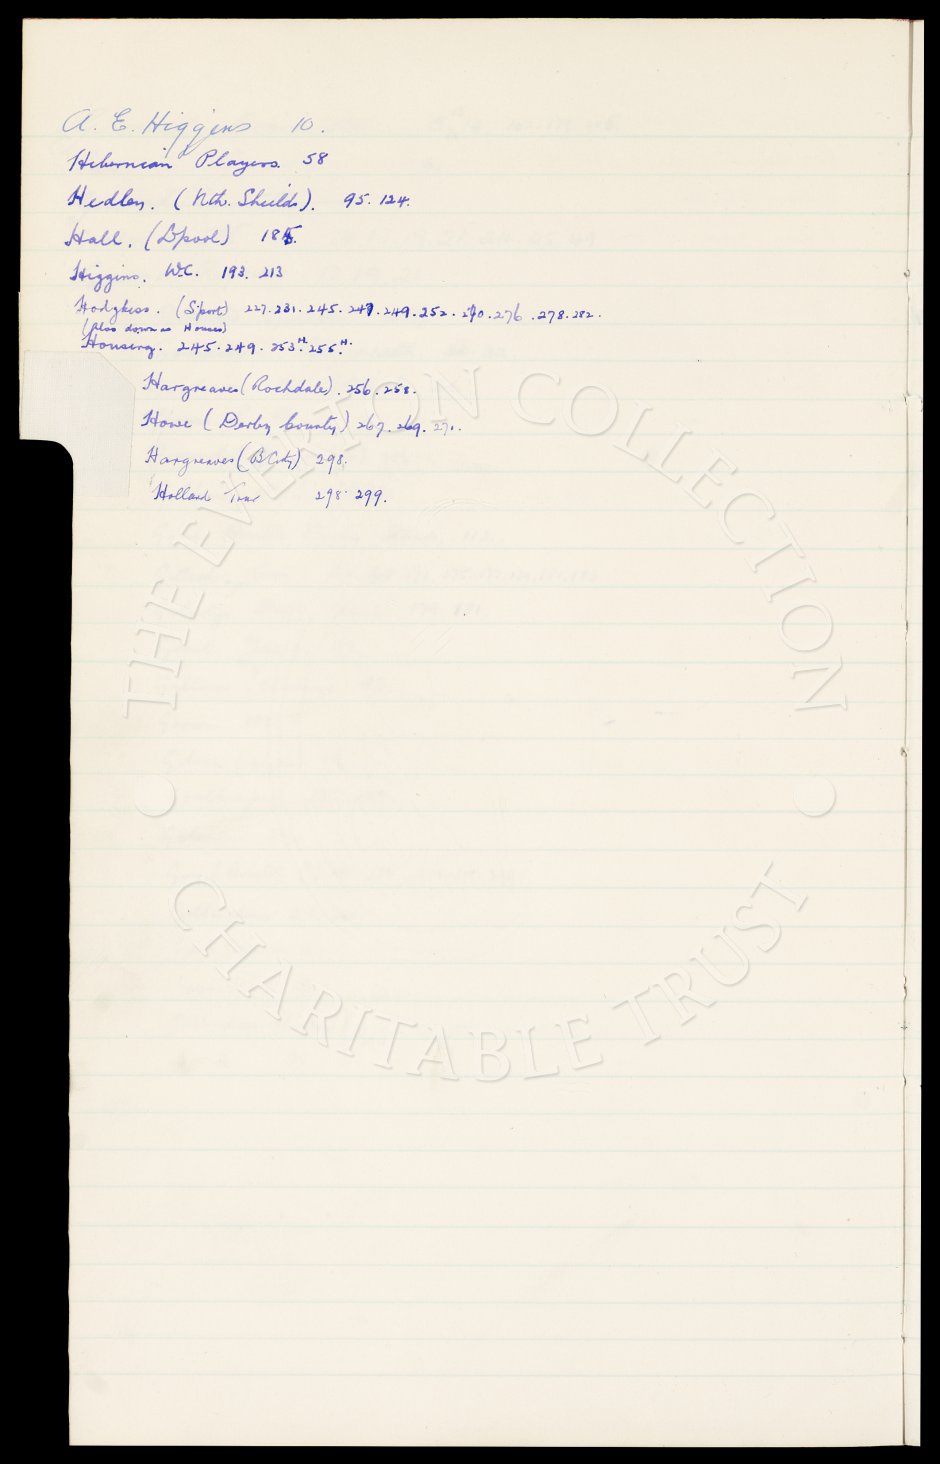 A. E. Higgins 10.
Hibernian Players. 58
Hedley. (Nth. Shields). 95. 124.
Hall. (L'pool) 185.
Higgins. W.C. 193. 213
Hodgkiss. (S'port) 227. 231. 245. 247. 249. 252. 270. 276. 278. 282.
(Also down as Houses)
Housing. 245. 249. 253.H. 255.H.
Hargreaves (Rochdale). 256. 258.
Howe (Derby County) 267. 269. 271.
Hargreaves (B City) 298.
Holland Tour 298. 299.
THE EVERTON COLLECTION
CHARITABLE TRUST